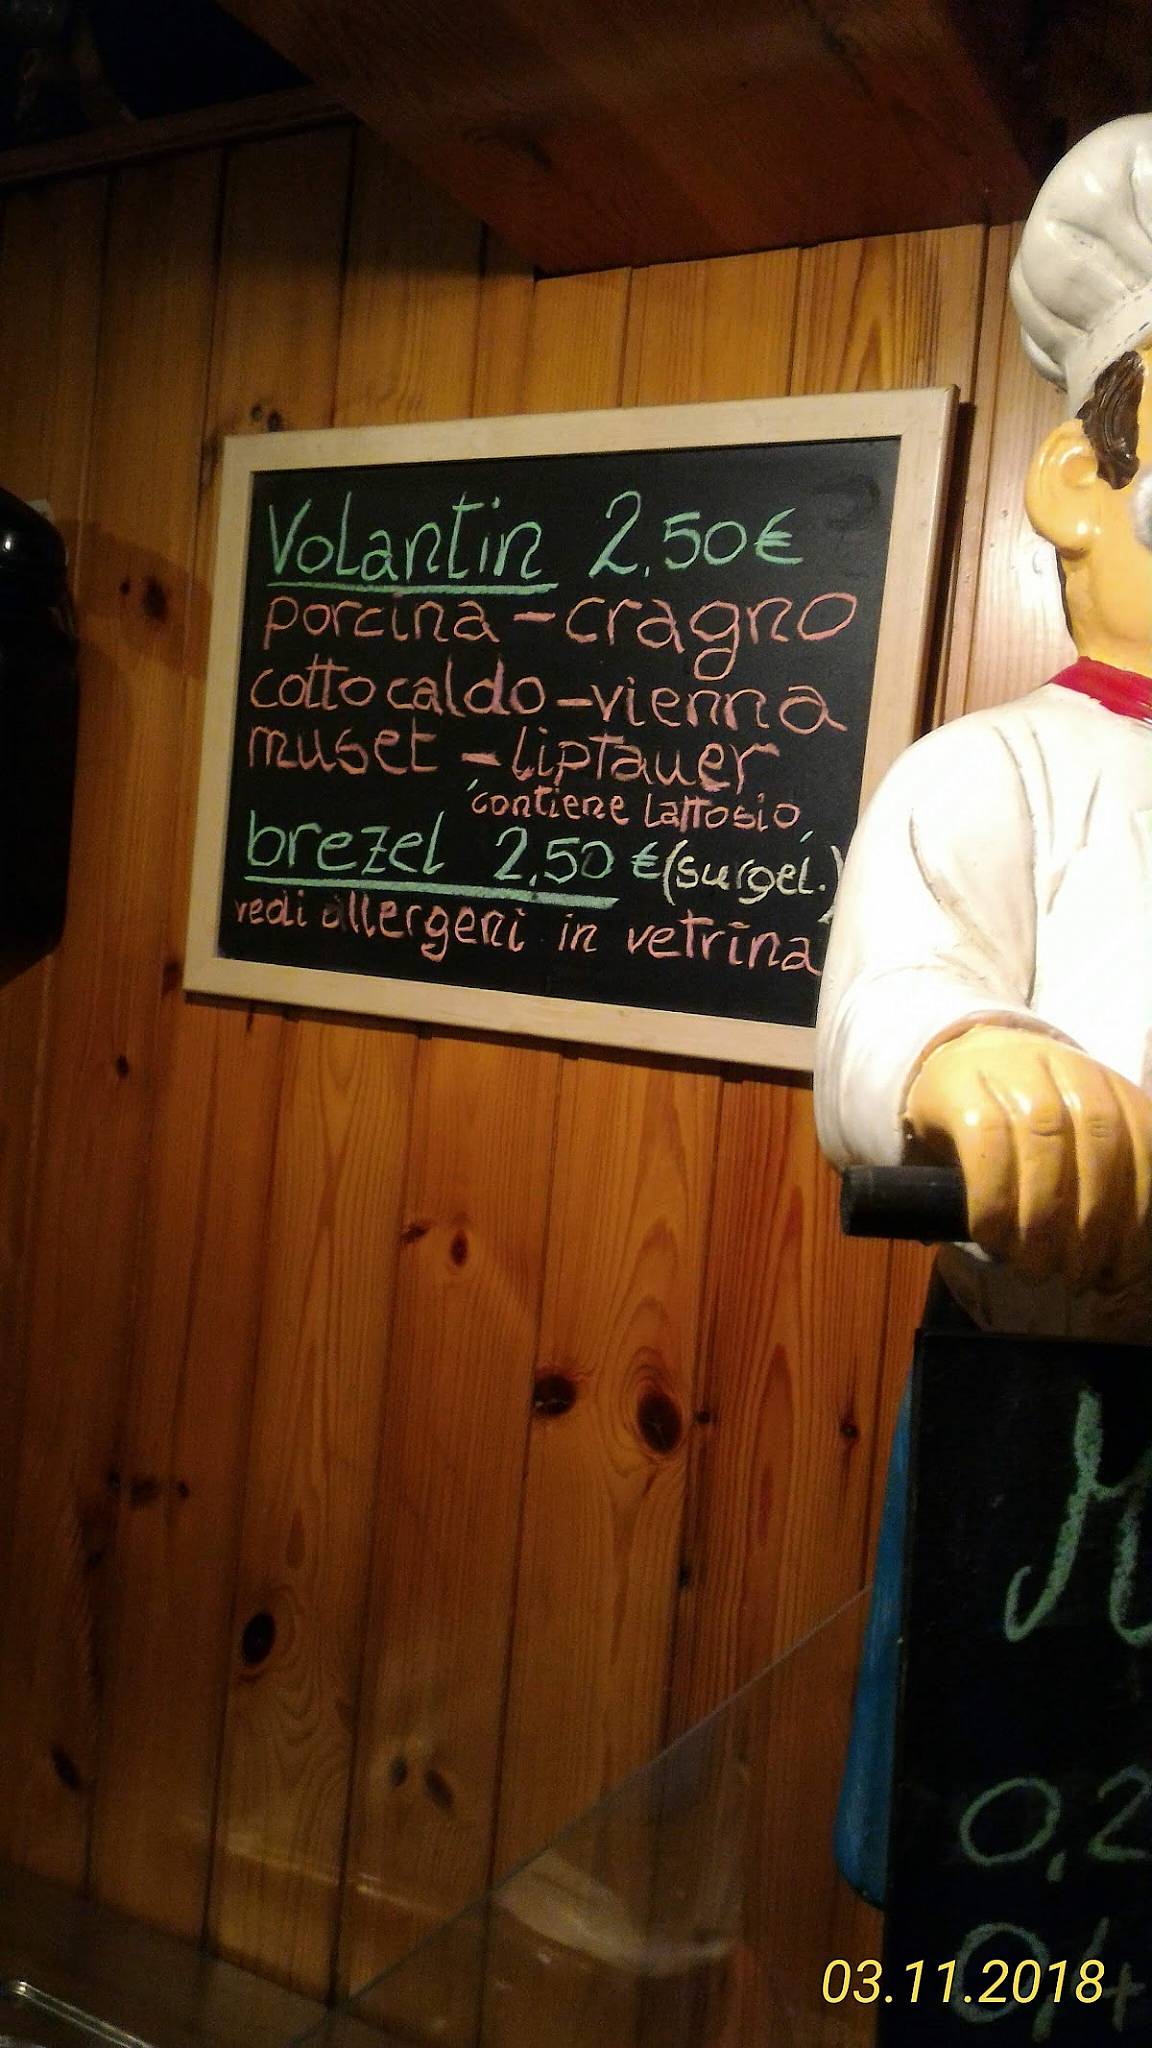 Volantin 2,50€
porcina - cragno
cotto caldo - vienna
muset - liptauer
contiene lattosio,
brezel 2,50 € (surgel.)
vedi allergeni in vetrina
0,2
0,4
03.11.2018